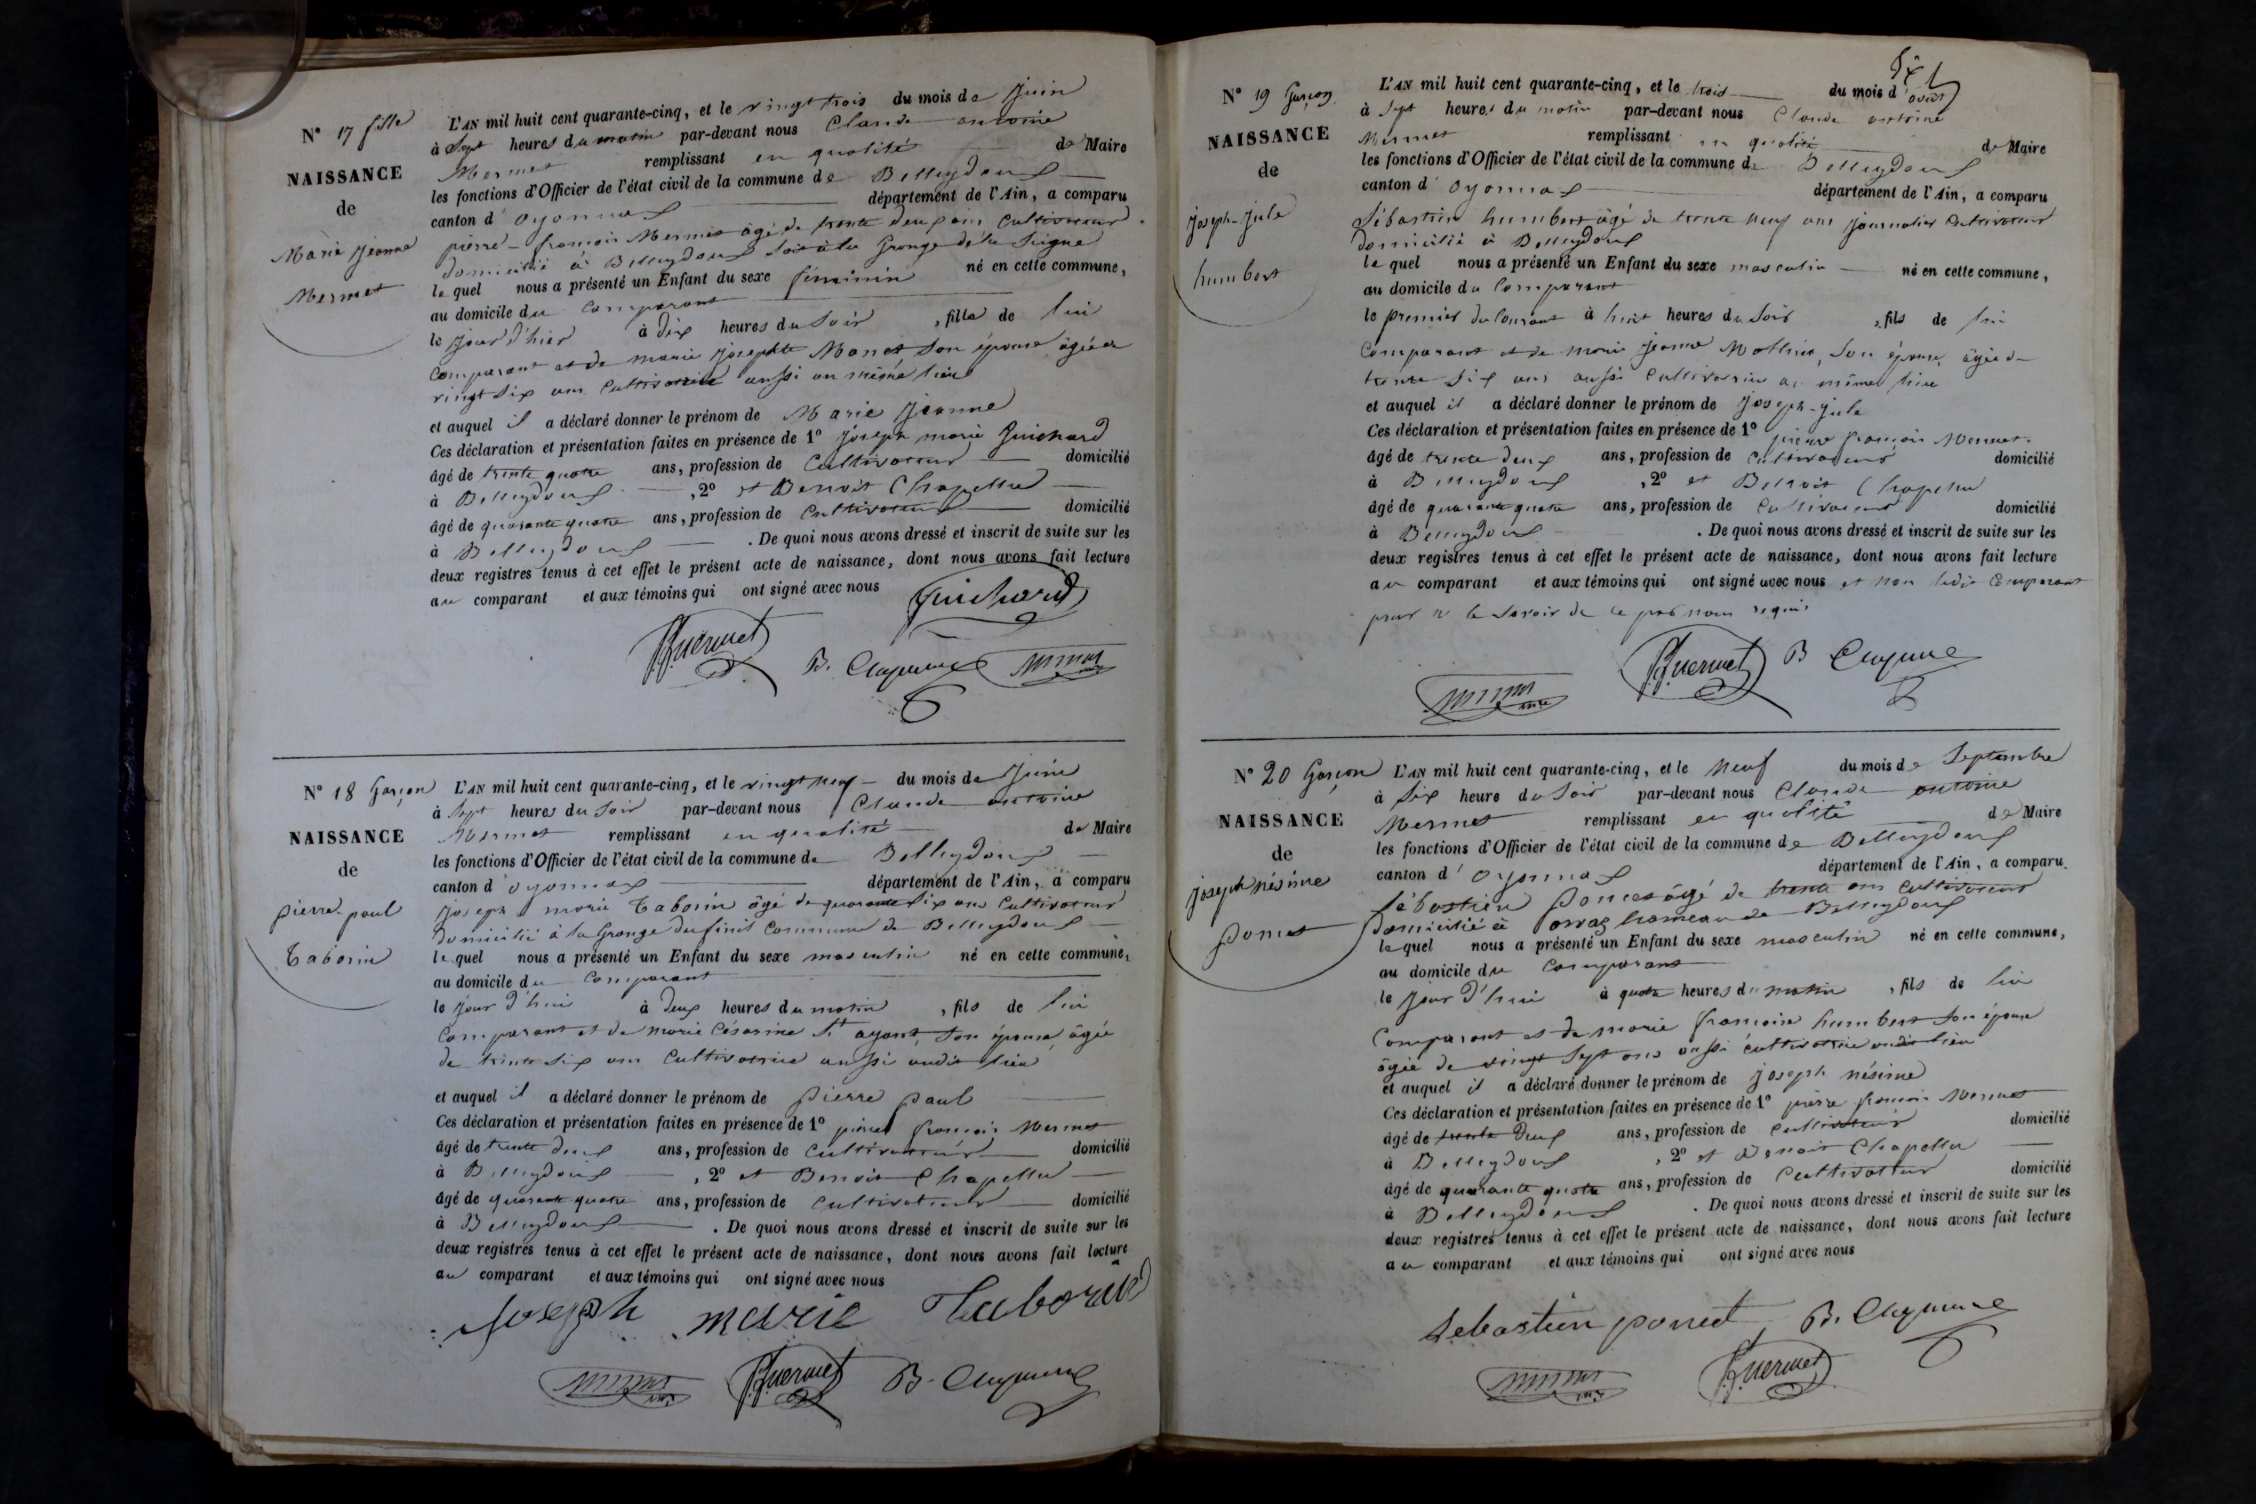 N° 17 fille
NAISSANCE
de
Marie Jeanne
Mermet
L'AN mil huit cent quarante-cinq, et le vingt trois du mois de Juin
à Sept heures du matin par-devant nous Claude antoine
Mermet remplissant en qualité de Maire
les fonctions d'Officier de l'état civil de la commune de Belleydoux
canton d'oyonnax département de l'Ain, a comparu
pierre-françois Mermet âgé de trente deux ans Cultivateur
domicilié à Belleydoux soit à la Grange de la
lequel nous a présenté un Enfant du sexe féminin né en cette commune,
au domicile du Comparant
le jour d'hier à dix heures du Soir, fille de lui
Comparant et de marie Josephte Monet Son épouse âgée de
vingt Six ans Cultivatrice aussi au même lieu
et auquel il a déclaré donner le prénom de Marie Jeanne
Ces déclaration et présentation faites en présence de 1° Joseph marie Guichard
âgé de trente quatre ans, profession de Cultivateur domicilié
à Belleydoux, 2° et Benoit Chapellu
âgé de quarante quatre ans, profession de Cultivateur domicilié
à Belleydoux. De quoi nous avons dressé et inscrit de suite sur les
deux registres tenus à cet effet le présent acte de naissance, dont nous avons fait lecture
au comparant et aux témoins qui ont signé avec nous
Guichard
Mermet B. Mermet
N° 18 Garçon
NAISSANCE
de
pierre-paul
Taborin
L'AN mil huit cent quarante-cinq, et le vingt neuf du mois de Juin
à Sept heures du Soir par-devant nous Claude antoine
Mermet remplissant en qualité de Maire
les fonctions d'Officier de l'état civil de la commune de Belleydoux
canton d'oyonnax département de l'Ain, a comparu
Joseph marie Taborin âgé de quarante Six ans Cultivateur
domicilié à la Grange Commune de Belleydoux
lequel nous a présenté un Enfant du sexe masculin né en cette commune,
au domicile du Comparant
le jour d'hui à deux heures du matin, fils de lui
Comparant et de marie Césarine St ayant, Son épouse, âgée
de trente Six ans Cultivatrice aussi audit lieu
et auquel il a déclaré donner le prénom de pierre paul
Ces déclaration et présentation faites en présence de 1° pierre françois Mermet
âgé de trente deux ans, profession de Cultivateur domicilié
à Belleydoux, 2° et Benoit Chapellu
âgé de quarante quatre ans, profession de Cultivateur domicilié
à Belleydoux. De quoi nous avons dressé et inscrit de suite sur les
deux registres tenus à cet effet le présent acte de naissance, dont nous avons fait lecture
au comparant et aux témoins qui ont signé avec nous
Joseph marie Taborin
Mermet B.
N° 19 Garçon
NAISSANCE
de
Joseph-Jule
humbert
L'AN mil huit cent quarante-cinq, et le trois du mois d'août
à Sept heures du matin par-devant nous Claude antoine
Mermet remplissant en qualité de Maire
les fonctions d'Officier de l'état civil de la commune de Belleydoux
canton d'oyonnax département de l'Ain, a comparu
Sébastien humbert âgé de trente neuf ans journalier Cultivateur
domicilié à Belleydoux
lequel nous a présenté un Enfant du sexe masculin né en cette commune,
au domicile du Comparant
le premier du Courant à huit heures du Soir, fils de lui
Comparant et de marie Jeanne, Son épouse, âgée de
trente Six ans aussi Cultivatrice au même lieu
et auquel il a déclaré donner le prénom de Joseph-Jule
Ces déclaration et présentation faites en présence de 1° pierre françois Mermet
âgé de trente deux ans, profession de Cultivateur domicilié
à Belleydoux, 2° et Benoit Chapellu
âgé de quarante quatre ans, profession de Cultivateur domicilié
à Belleydoux. De quoi nous avons dressé et inscrit de suite sur les
deux registres tenus à cet effet le présent acte de naissance, dont nous avons fait lecture
au comparant et aux témoins qui ont signé avec nous et non ledit Comparant
pour ne le Savoir de ce par nous requis
Mermet B
N° 20 Garçon
NAISSANCE
de
Joseph nésime
poncet
L'AN mil huit cent quarante-cinq, et le Neuf du mois de Septembre
à Six heure du Soir par-devant nous Claude antoine
Mermet remplissant en qualité de Maire
les fonctions d'Officier de l'état civil de la commune de Belleydoux
canton d'oyonnax département de l'Ain, a comparu
Sébastien Poncet âgé de trente ans Cultivateur
Domicilié à orvaz hameau de Belleydoux
lequel nous a présenté un Enfant du sexe masculin né en cette commune,
au domicile du Comparant
le jour d'hui à quatre heures du matin, fils de lui
Comparant et de marie françoise humbert Son épouse
âgée de vingt Sept ans aussi cultivatrice audit lieu
et auquel il a déclaré donner le prénom de Joseph nésime
Ces déclaration et présentation faites en présence de 1° pierre françois Mermet
âgé de trente deux ans, profession de Cultivateur domicilié
à Belleydoux, 2° et Benoit Chapellu
âgé de quarante quatre ans, profession de Cultivateur domicilié
à Belleydoux. De quoi nous avons dressé et inscrit de suite sur les
deux registres tenus à cet effet le présent acte de naissance, dont nous avons fait lecture
au comparant et aux témoins qui ont signé avec nous
Sebastien poncet B.
Mermet